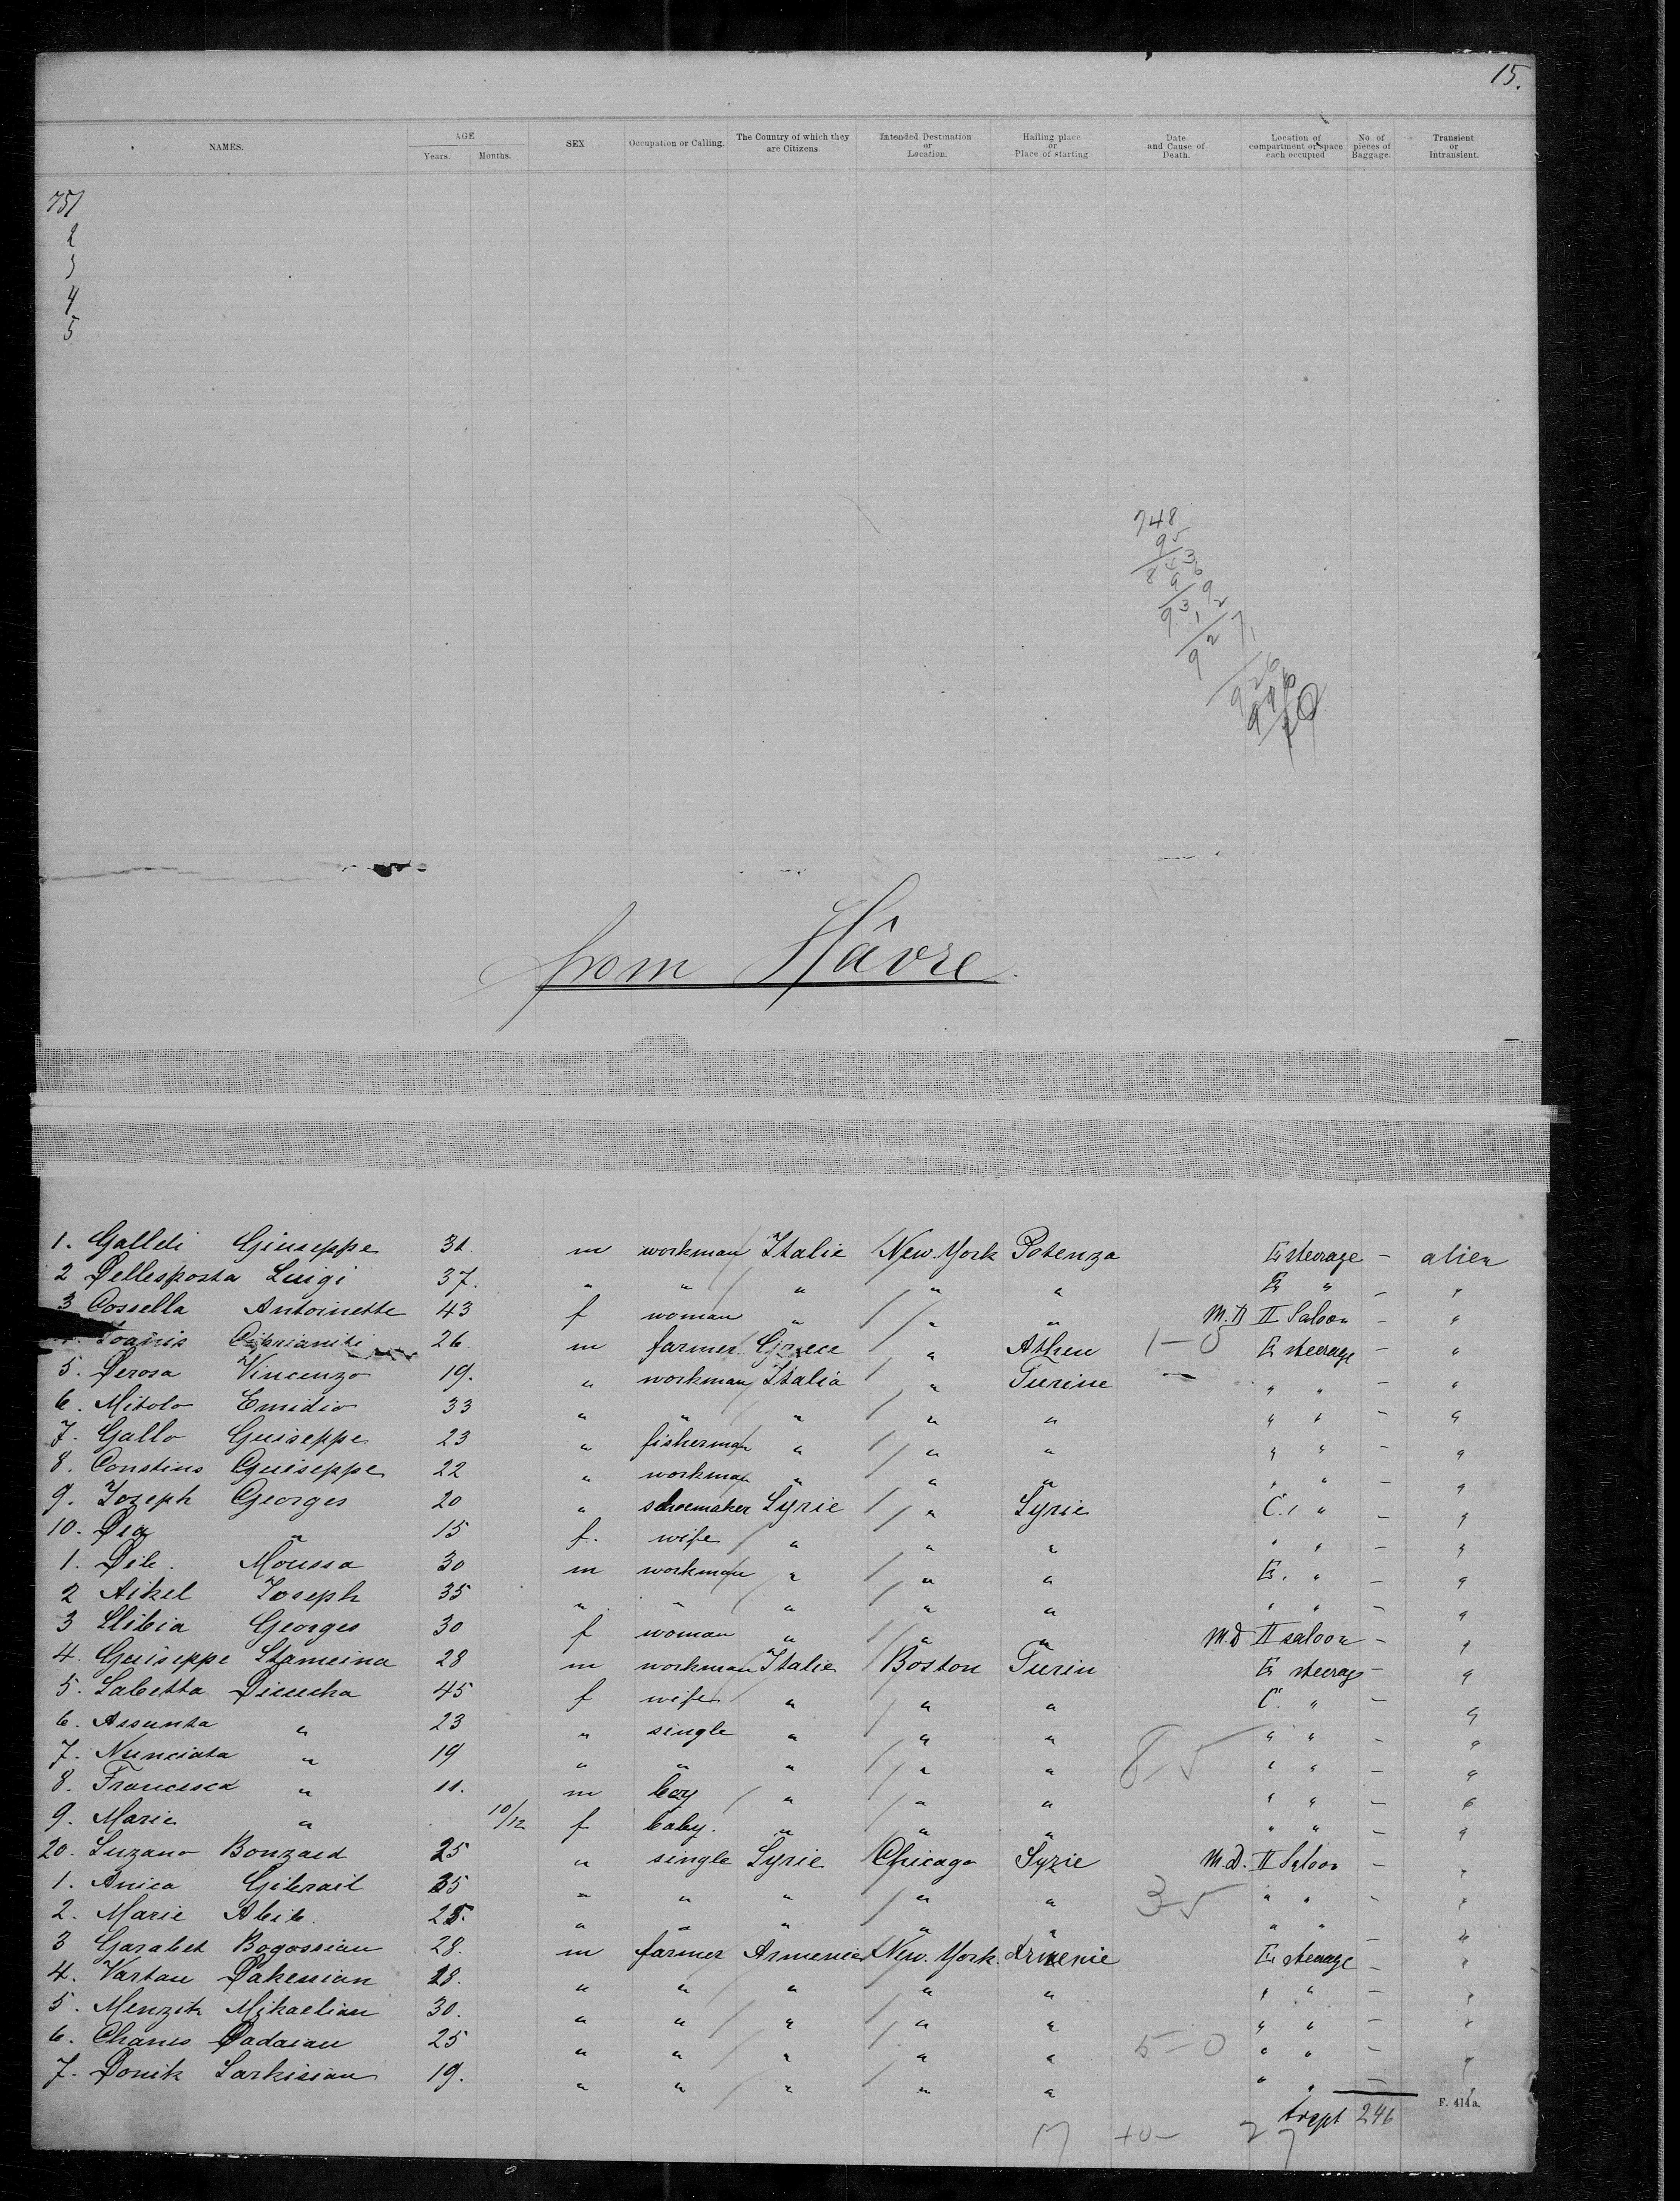 15.
NAMES. AGE Years. Months. SEX Occupation or Calling. The Country of which they are Citizens. Intended Destination or Location. Hailing place or Place of starting. Date and Cause of Death. Location of compartment or space each occupied No. of pieces of Baggage. Transient or Intransient.
751
2
3
4
5
748
95
843
from Hâvre.
1. Galleti Giuseppe 31. m workman Italie New. York Potenza E steerage – alien
2 Dellesposta Luigi 37. " " " " " E " – "
3 Cossella Antoinette 43 f woman " " " M.D II Saloon – "
Ioanis 26 m farmer Greece " Athen 1–0 E steerage – "
5. Derosa Vincenzo 19. " workman Italia " Turine " " – "
6. Mitolo Emidio 33 " " " " " " " – "
7. Gallo Guiseppe 23 " fisherman " " " " " – "
8. Constino Guiseppe 22 " workman " " " " " – "
9. Joseph Georges 20 " schoemaker Syrie " Syrie C. " – "
10. Dea " 15 f. wife " " " " " – "
1. Dib. Moussa 30 m workman " " " E. " – "
2 Aikel Joseph 35 " " " " " " " – "
3 Slibia Georges 30 f woman " " " M.D II saloon – "
4. Guiseppe Stameina 28 m workman Italie Boston Turin E steerage – "
5. Labetta Dicucha 45 f wife " " " C. " – "
6. Assunta " 23 " single " " " " " – "
7. Nunciata " 19 " " " " " " " – "
8. Francesca " 11. m boy " " " " " – "
9. Marie " 10/12 f baby. " " " " " – "
20. Suzano Bonzaed 25 " single Syrie Chicago Syrie M.D. II Saloon – "
1. Anica Gibrail 35 " " " " " " " – "
2. Marie Abib. 25. " " " " " " " – "
3 Garabet Bogossian 28. m farmer Armenie New. York. Armenie E steerage – "
4. Vartan Dakessian 28. " " " " " " " – "
5. Menzik Mikaelian 30. " " " " " " " – "
6. Chanes Dadaian 25 " " " " " 5–0 " " – "
7. Donik Sarkisian 19. " " " " " " " – "
246 F. 414a.